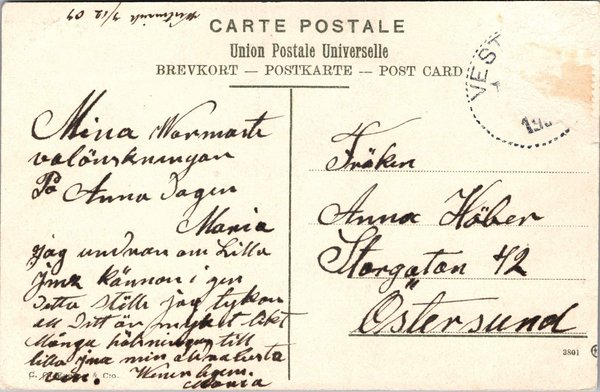 CARTE POSTALE
Union Postale Universelle
BREVKORT — POSTKARTE — POST CARD
VEST
Mina Varmaste
välönskningar
På Anna dagen
Maria
jag undran om Lilla
Ima kännon i gen
detta ställe jag tykon
att Ditt är myket likt
Många hälsningar till
lilla Ima min
vän.
Maria
& Co.
Fröken
Anna Höber
Storgatan 42
Östersund
3801